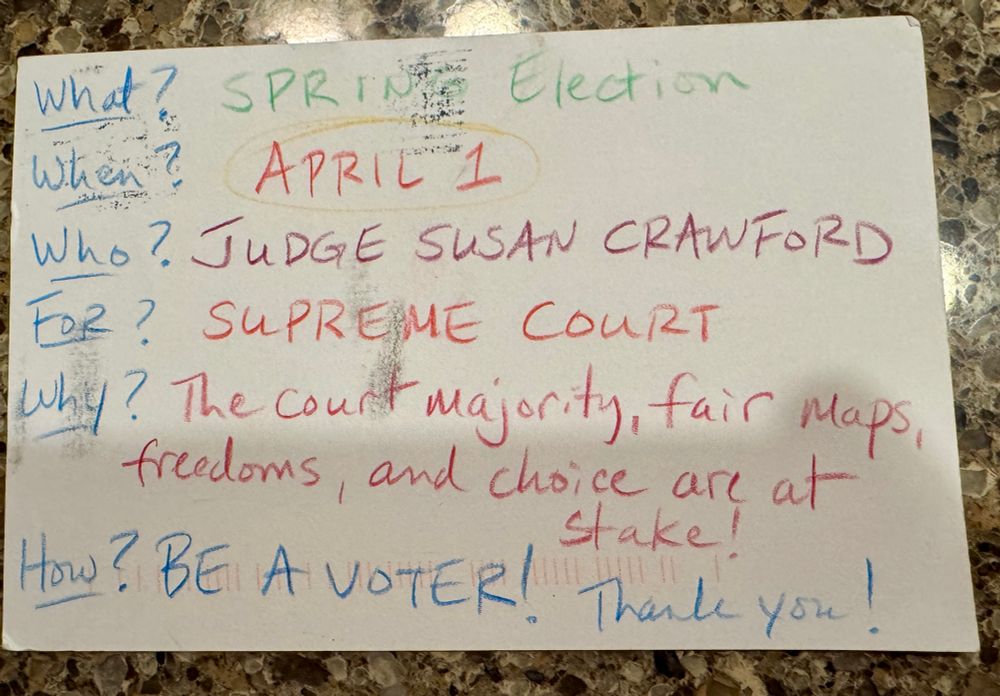 What? SPRING Election
When? APRIL 1
Who? JUDGE SUSAN CRAWFORD
FOR? SUPREME COURT
Why? The court majority, fair maps,
freedoms, and choice are at
stake!
How? BE A VOTER! Thank you!